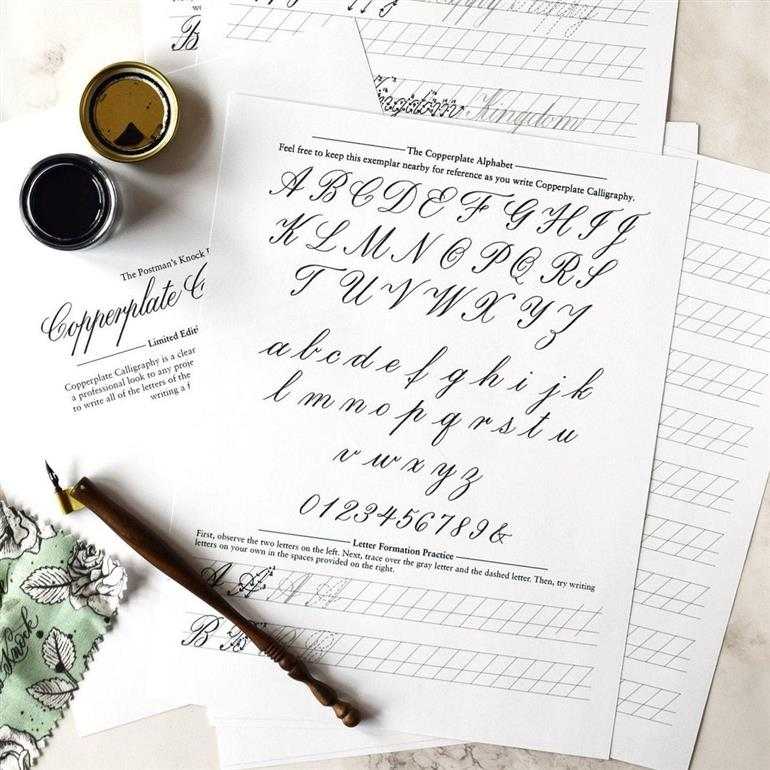 Kingdom Kingdom
The Copperplate Alphabet
Feel free to keep this exemplar nearby for reference as you write Copperplate Calligraphy.
A B C D E F G H I J
K L M N O P Q R S
T U V W X Y Z
a b c d e f g h i j k
l m n o p q r s t u
v w x y z
0 1 2 3 4 5 6 7 8 9 &
Letter Formation Practice
First, observe the two letters on the left. Next, trace over the gray letter and the dashed letter. Then, try writing
letters on your own in the spaces provided on the right.
A A A A
B B B B
The Postman's Knock
Copperplate C
Limited Editi
Copperplate Calligraphy is a clear
a professional look to any proje
to write all of the letters of the
writing a f
B
Knock